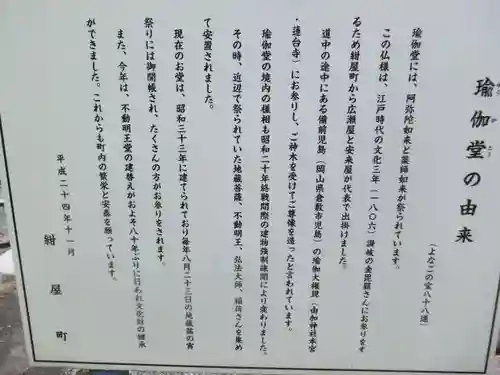 瑜伽堂の由来
ゆ か どう
(よなごの堂八十八選)
瑜伽堂には、阿弥陀如来と薬師如来が祭られています。
この仏様は、江戸時代の文化三年(一八〇六)讃岐の金毘羅さんにお参りをす
るため紺屋町から広瀬屋と安来屋が代表で出掛けました。
道中の途中にある備前児島(岡山県倉敷市児島)の瑜伽大権現(由加神社本宮
・蓮台寺)にお参りし、ご神木を受けてご尊像を造ったと言われています。
瑜伽堂の境内の様相も昭和二十年終戦間際の建物強制疎開により変わりました。
その時、近辺で祭られていた地蔵菩薩、不動明王、弘法大師、稲荷さんを集め
て安置されました。
現在のお堂は、昭和三十三年に建てられており毎年八月二十三日の地蔵盆の宵
祭りには御開帳され、たくさんの方がお参りをされます。
また、今年は、不動明王堂の建替えがおよそ八十年ぶりに行われ文化財の継承
ができました。これからも町内の繁栄と安泰を願っています。
平成二十四年十一月
紺屋町